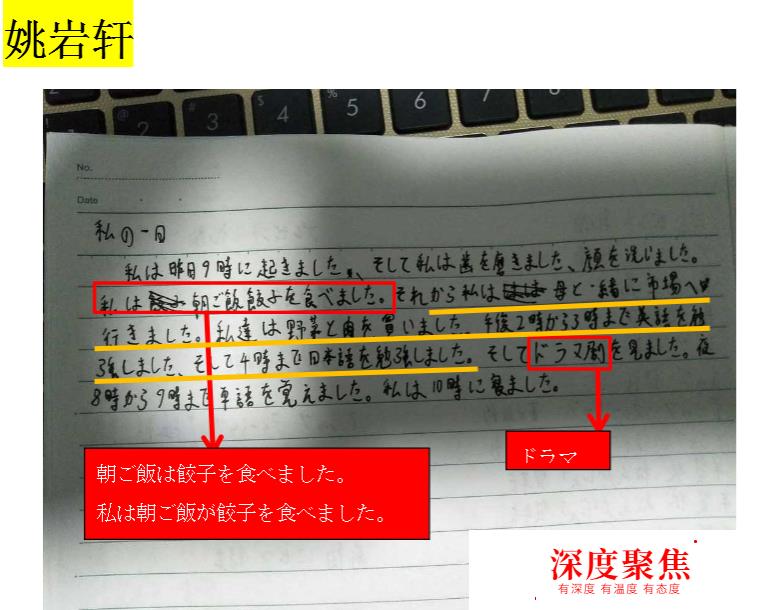 姚岩轩
$
4
%
5
6
7
@
2
#
3
No.
Date
私の一日
私は昨日9時に起きました、そして私は歯を磨きました、顔を洗いました。
私は朝ご飯餃子を食べました。それから私は母と一緒に市場へ
行きました。私達は野菜と肉を買いました。午後2時から3時まで英語を勉
強しました、そして4時まで日本語を勉強しました。そしてドラマ劇を見ました。夜
8時から9時まで単語を覚えました。私は10時に寝ました。
朝ご飯は餃子を食べました。
私は朝ご飯が餃子を食べました。
ドラマ
深度聚焦
有深度 有温度 有态度